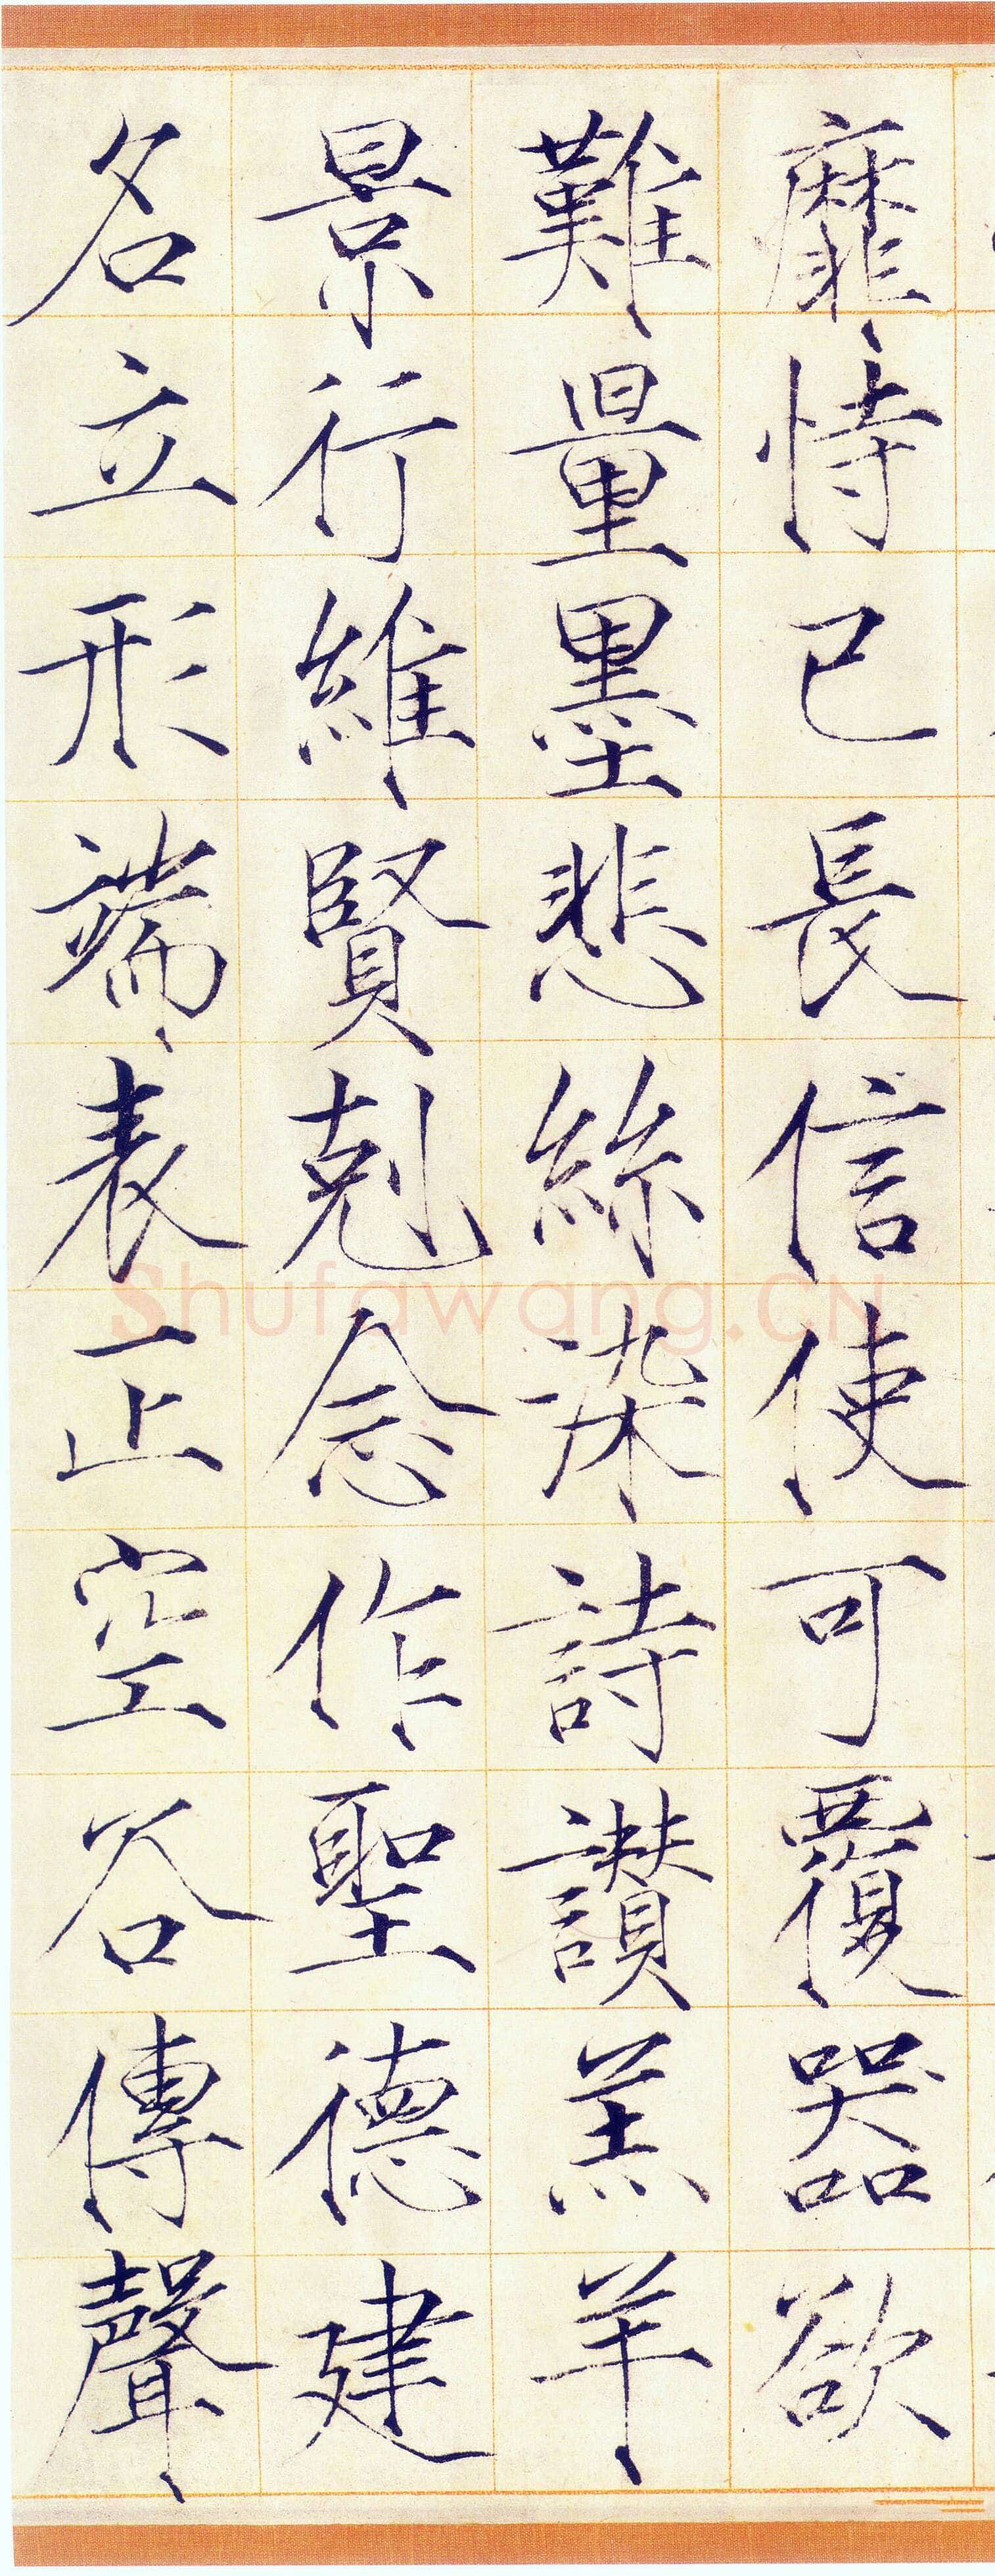 靡恃己長信使可覆器欲
難量墨悲絲染詩讚羔羊
景行維賢剋念作聖德建
名立形端表正空谷傳聲
Shufawang.CN